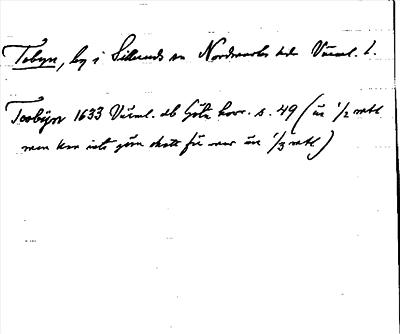 Tobyn, by i Silleruds sn Nordmarks hd Värml. l.
Toobÿn 1633 Värml. äb Götz korr. s. 49 (är 1/2 mtl
men kan icke giöra skatt för mer än 1/3 mtl)